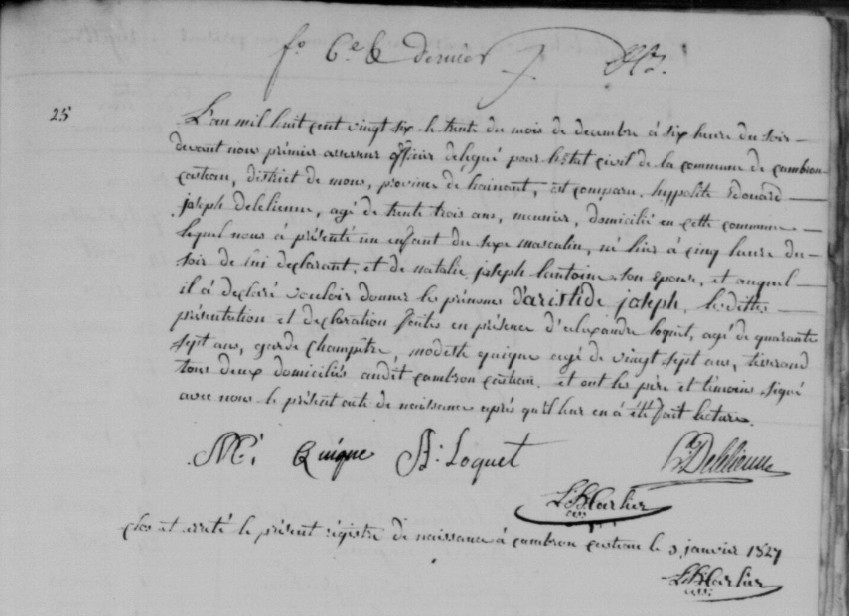 fo. 6e & dernier
25
L'an mil huit cent vingt six le trente du mois de decembre à six heure du soir
devant nous prémier assesseur officier delegué pour l'état civil de la commune de cambron
casteau, district de mons, province de hainaut, est comparu, hyppolite Edouard
joseph delelienne, agé de trente trois ans, meunier, domicilié en cette commune
lequel nous à présenté un enfant du sexe masculin, né hier à cinq heure du
soir de lui declarant, et de natalie joseph lantoine son épouse, et auquel
il à declaré vouloir donner les prénoms d'aristide joseph, lesdittes
présentation et declaration faites en présence d'alexandre loquet, agé de quarante
sept ans, garde champêtre, modeste quique agé de vingt sept ans, tisserand
tous deux domiciliés audit cambron casteau. et ont les pere et témoins signé
avec nous le présent acte de naissance après qu'il leur en à été fait lecture.
Mt: Quique A: Loquet Delelienne
Carlier
ass
clos et arreté le présent régistre de naissance à cambron casteau le 3 janvier 1827
Carlier
ass: